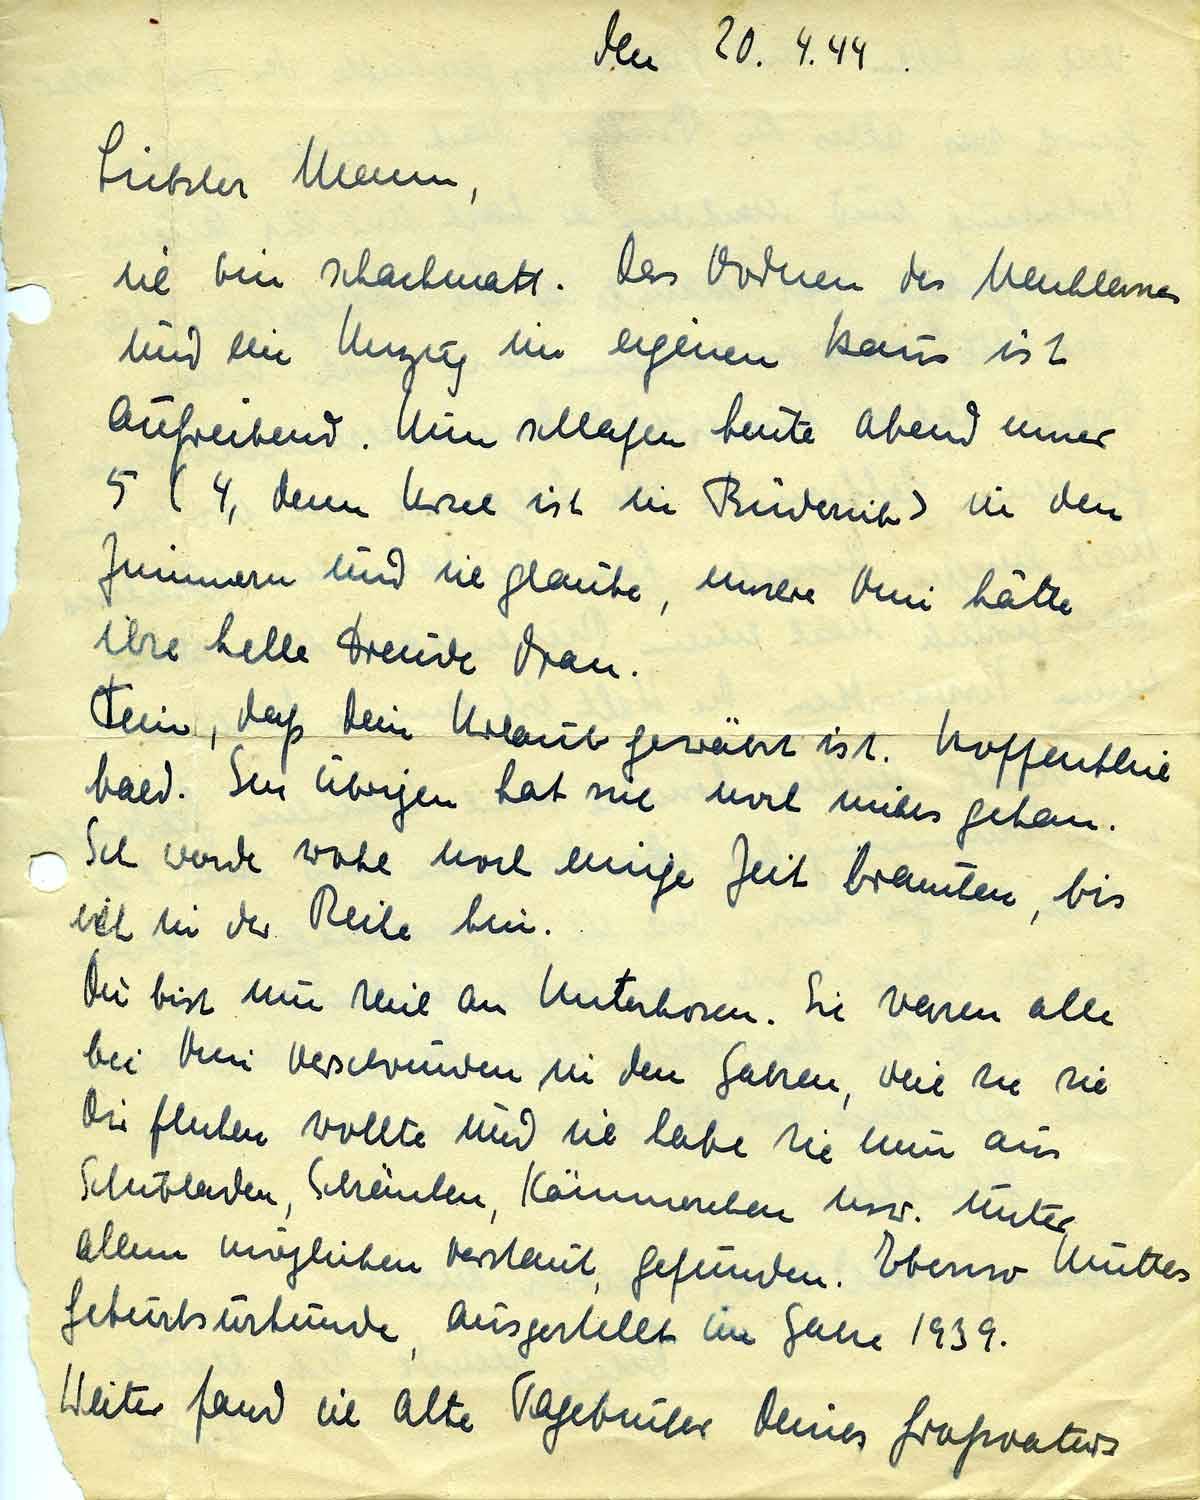 den 20. 4. 44.
Liebster Mann,
ich bin schachmatt. Das Ordnen des Nachlasses
und ein Umzug im eigenen Haus ist
aufreibend. Nun schlafen heute abend unser
5 (4, denn Ursel ist in Büderich) in den
Zimmern und ich glaube, unsere Omi hätte
ihre helle Freude dran.
Fein, daß Dein Urlaub gewährt ist. Hoffentlich
bald. Im übrigen hat sich noch nichts getan.
Ich werde wohl noch einige Zeit brauchen, bis
ich in der Reihe bin.
Du bist nun reich an Unterhosen. Sie waren alle
bei Omi verschwunden in den Jahren, weil sie sie
Dir flicken wollte und ich habe sie nun aus
Schubladen, Schränken, Kämmerchen usw. unter
allem möglichen verstaut, gefunden. Ebenso Mutters
Geburtsurkunde, ausgestellt im Jahre 1939.
Weiter fand ich alte Tagebücher Deines Großvaters